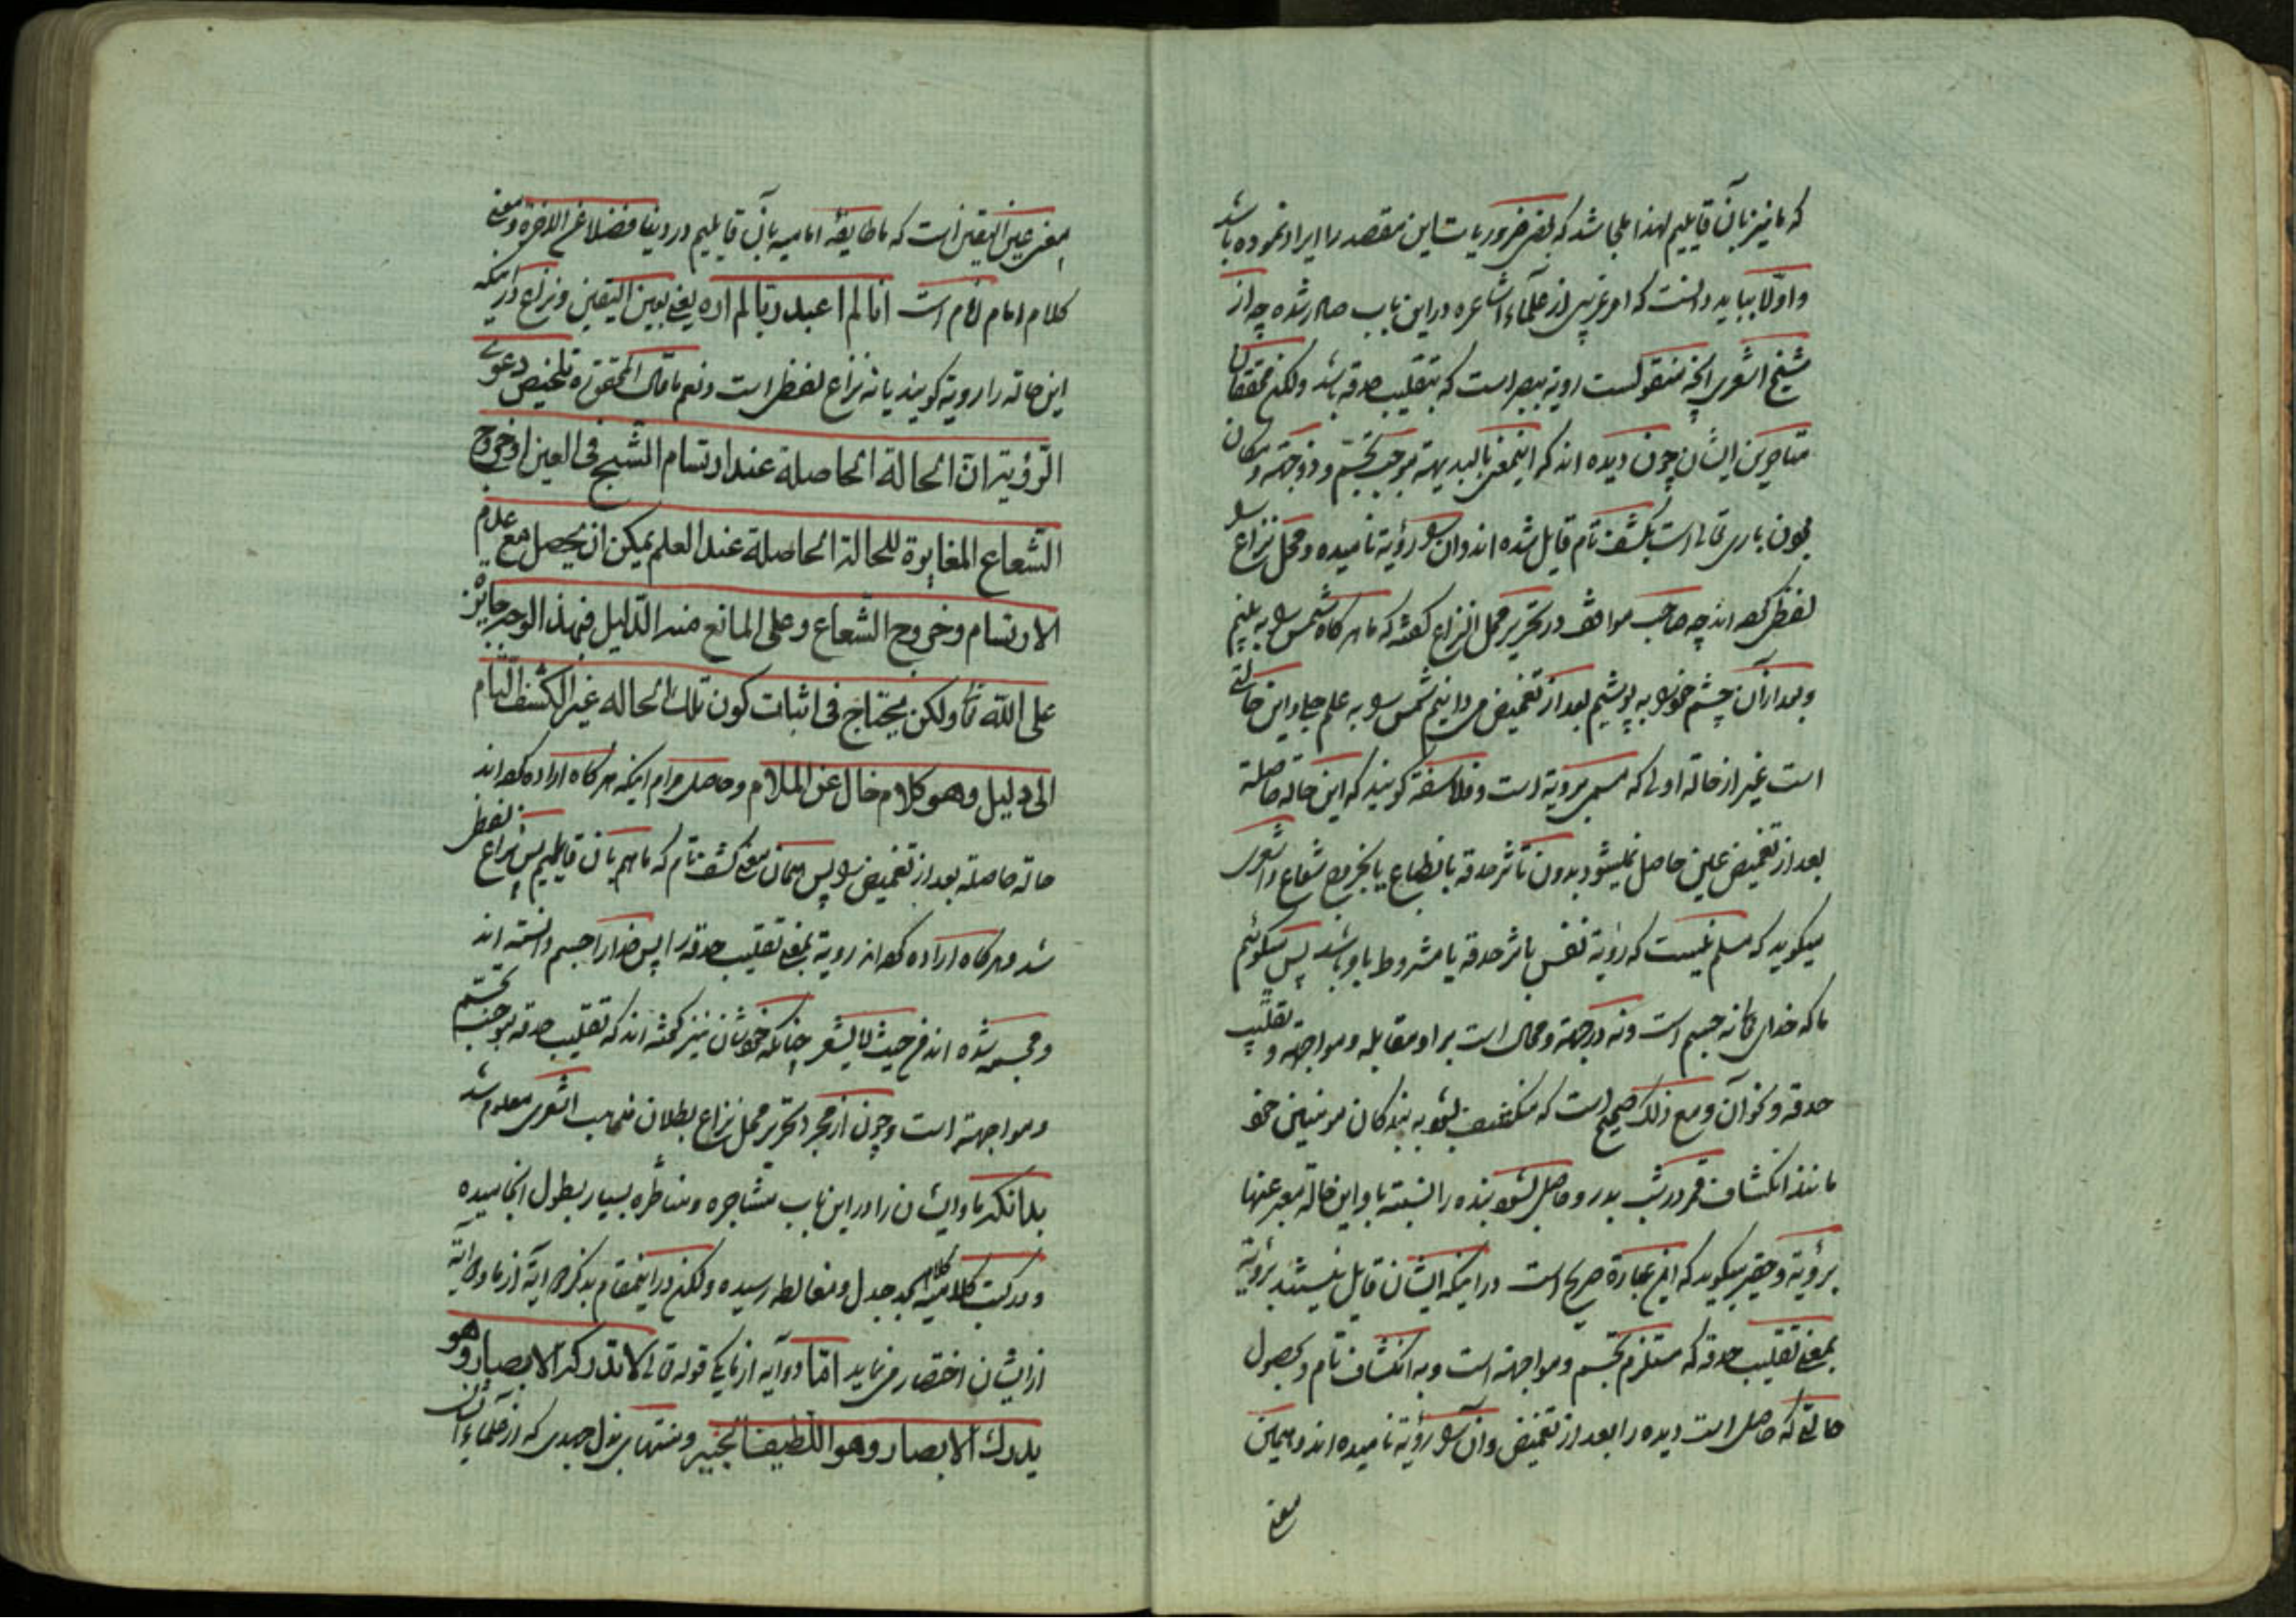 که ما نیز بآن قایلیم لهذا ملجا شد که بعض ضروریات این مقصد را ایراد نموده باشد
و اوّلا بباید دانست که امر غریبی از علمآء اشاعره در این باب صادر شده چه از
شیخ اشعری آنچه منقولست رویة ببصر است که بتقلیب حدقه باشد ولکن محققان
متاخرین ایشان چون دیده اند که اینمعنی بالبدیهه موجب تجسّم و ذو جهة و مکان
بودن باری تعالی است بکشف تام قایل شده اند و آن را رؤیة نامیده و محل نزاع را
لفظی کرده اند چه صاحب مواقف در تحریر محل النزاع گفته که ما هرگاه شمس را به بینیم
و بعد از آن چشم خود را به پوشیم بعد از تغمیض میدانیم شمس را به علم جلی و این حالتی
است غیر از حالة اولی که مسمی برویة است و فلاسفة گویند که این حالة حاصلة
بعد از تغمیض عین حاصل نمیشود بدون تأثر حدقه بانطباع یا بخروج شعاع و اشعری
میگوید که مسلم نیست که رؤیة نفس تاثر حدقه یا مشروط باو باشد پس میگوئیم
ما که خدای تعالی نه جسم است و نه در جهة و محال است بر او مقابله و مواجهة و تقلیب
حدقه و نحو آن و مع ذلک صحیح است که منکشف بشود به بندگان مومنین خود
مانند انکشاف قمر در شب بدر و حاصل بشود بنده را نسبت باو این حالة معبر عنها
برؤیة و حقیر میگوید که این عبارة صریح است در اینکه ایشان قایل نیستند برؤیة
بمعنی تقلیب حدقه که مستلزم تجسم و مواجهة است و به انکشاف تام و بحصول
حالتی که حاصل است دیده را بعد از تغمیض و آن را رؤیة نامیده اند و همین
معنی
معنی عین الیقین است که ما طایفهٔ امامیه بآن قایلیم در دنیا فضلا عن الاخرة و معنی
کلام امام تمام است انا لم اعبد ربّا لم اره یعنی بعین الیقین و نزاع در اینکه
این حالة را رویة گویند یا نه نزاع لفظی است و نعم ما قال المحقق ره تلخیص دعوی
الرّؤیة ان الحالة الحاصلة عند ارتسام الشبح فی العین او خروج
الشعاع المغایرة للحالة الحاصلة عند العلم یمکن ان یحصل مع عدم
الارتسام و خروج الشعاع و علی المانع منه الدّلیل فهذا الوجه جایز
علی الله تعا ولکن یحتاج فی اثبات کون تلک الحاله غیر الکشف التام
الی دلیل وهو کلام خال عن الملام و حاصل مرام اینکه هرگاه اراده کرده اند
حالة حاصلة بعد از تغمیض را پس همان معنی کشف تام که ما هم بآن قایلیم پس نزاع لفظی
شد و هرگاه اراده کرده اند رویة بمعنی تقلیب حدقه را پس خدا را جسم دانسته اند
و مجسمه شده اند من حیث لا یشعر چنانکه خودشان نیز گفته اند که تقلیب حدقه موجب تجسم
و مواجهة است و چون از مجرد تحریر محل نزاع بطلان مذهب اشعری معلوم شد
بدانکه ما و ایشان را در این باب مشاجره و مناظره بسیار بطول انجامیده
و در کتب کلامیه کلام بحد جدل و مغالطه رسیده ولکن در اینمقام بذکر دو آیة از ما و دو آیة
از ایشان اختصار مینماید امّا دو آیه از ما یکی قوله تعالی لا تدرکه الابصار وهو
یدرک الابصار وهو اللطیف الخبیر و منتهای بذل جهدی که از علمآء ایشان